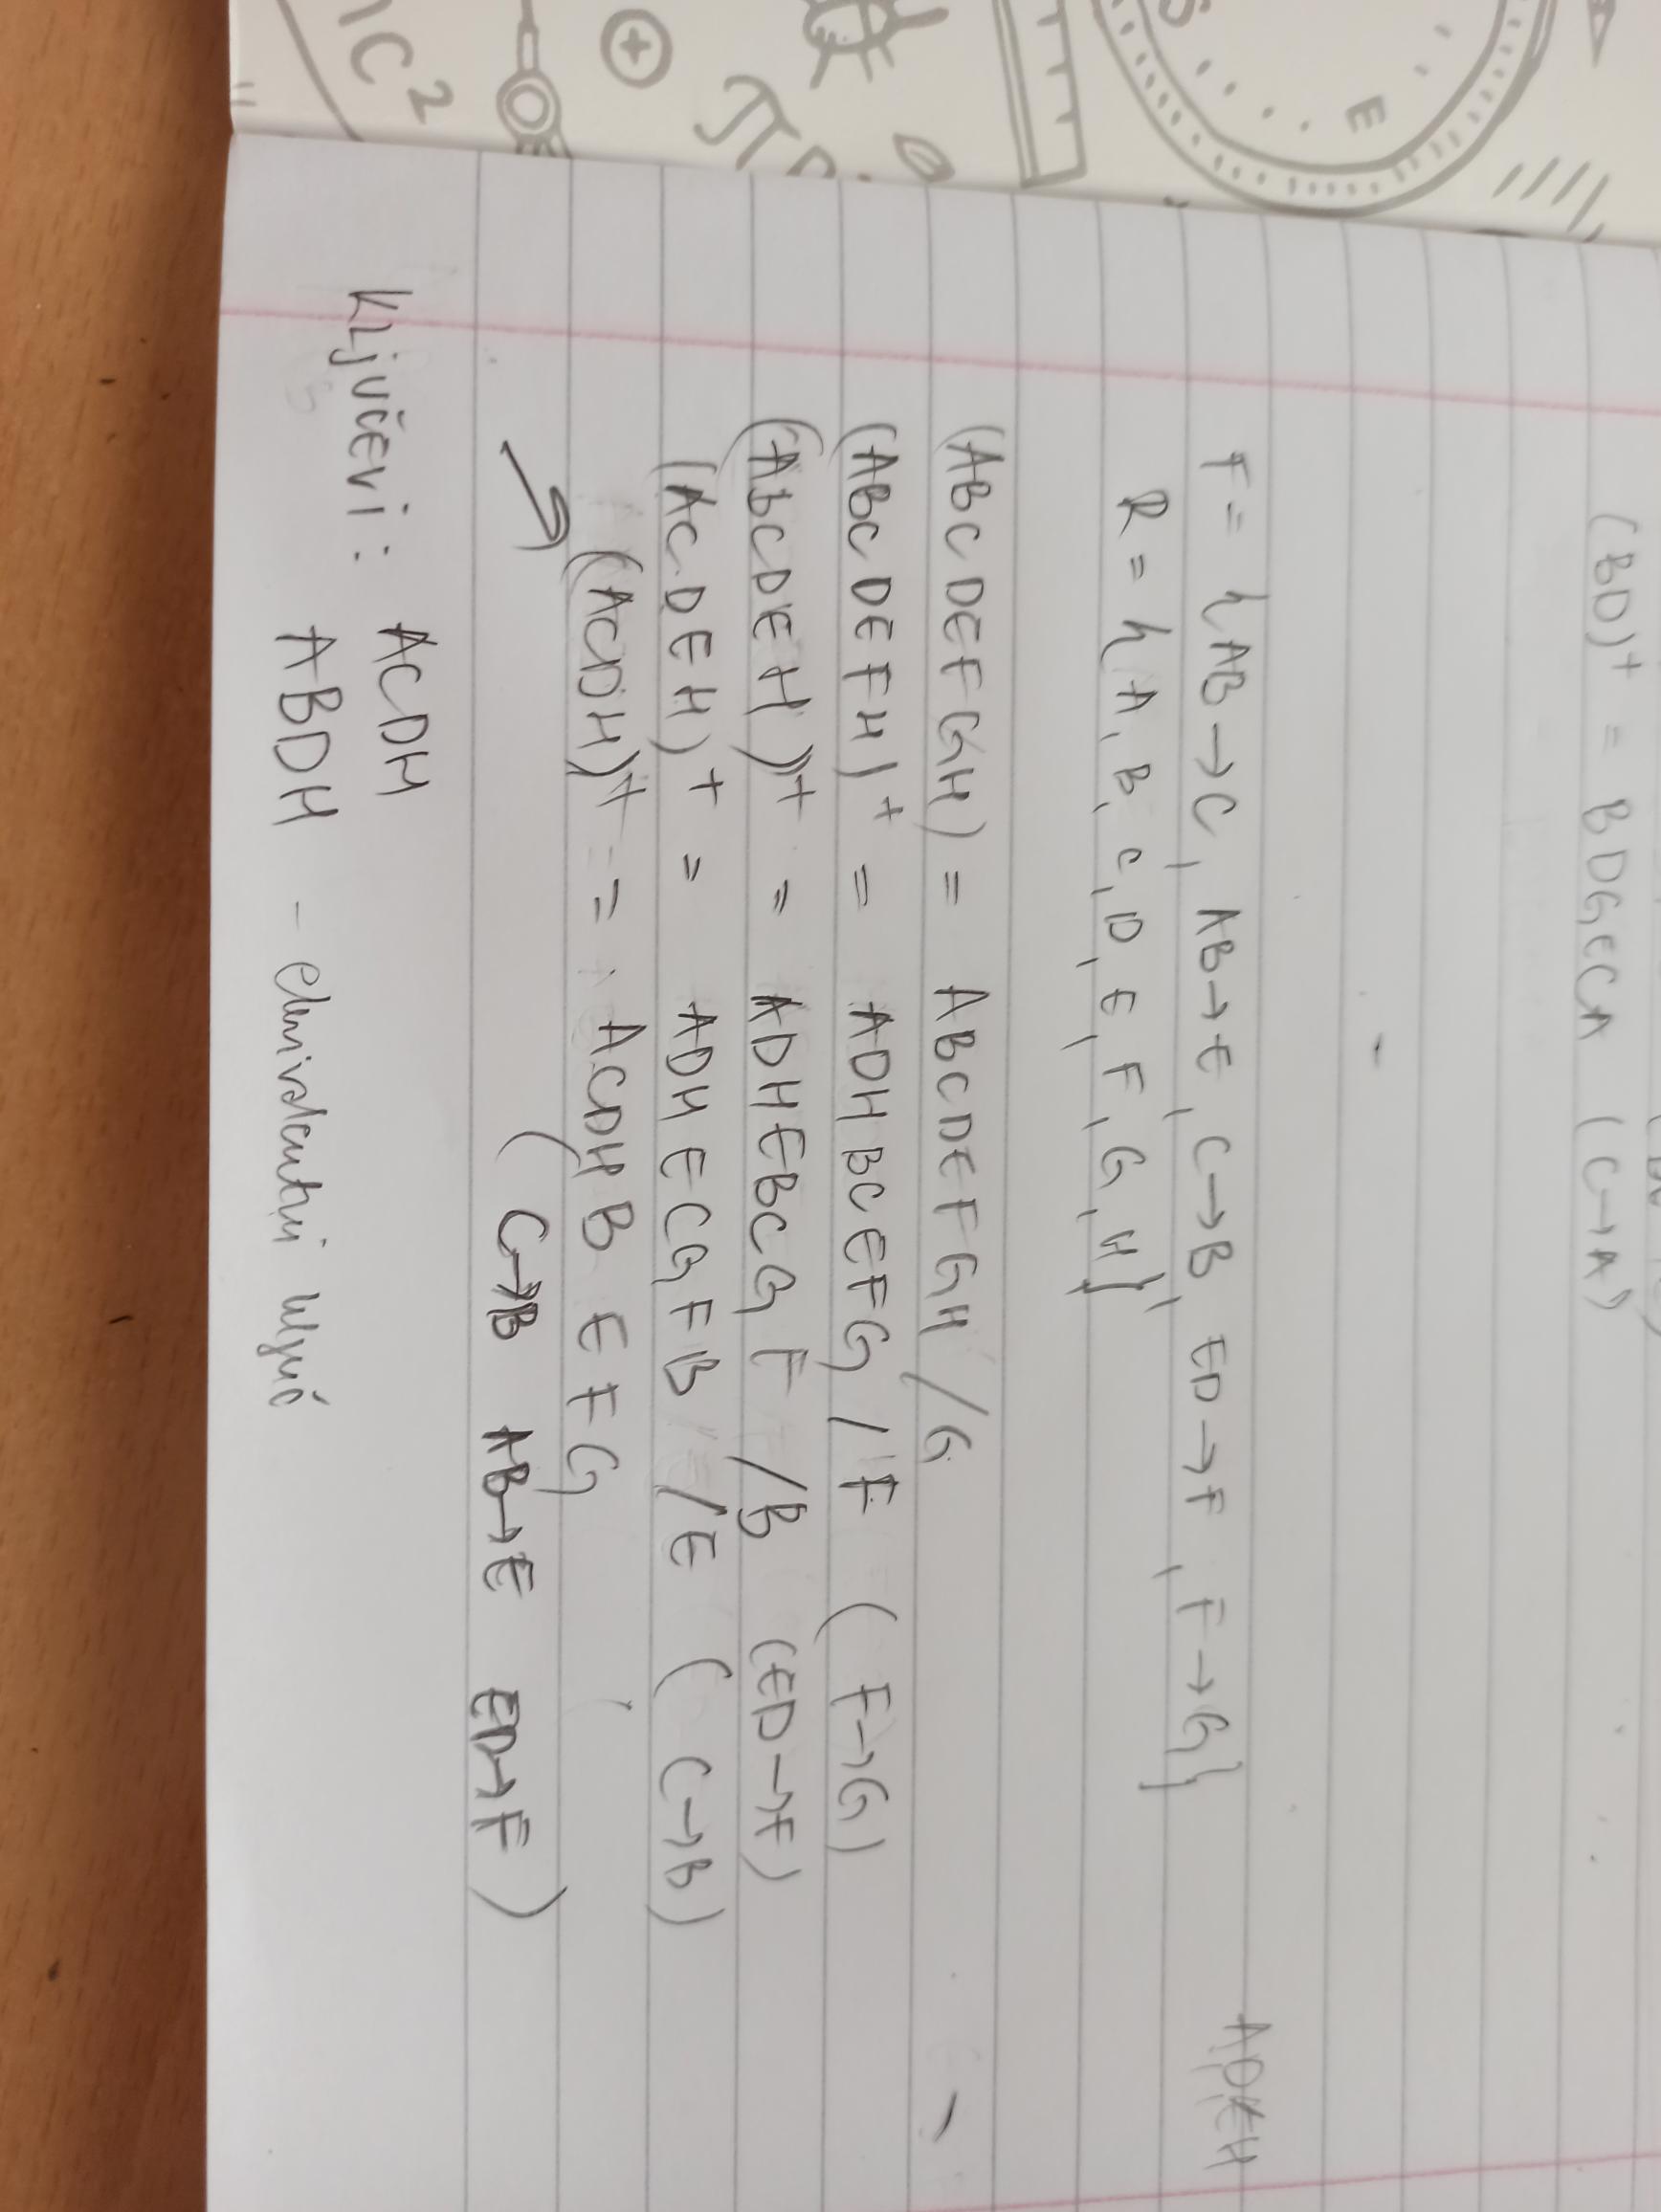 (BD)+ = BDGECA (C→A)
F = { AB→C, AB→E, C→B, ED→F, F→G}
R = { A, B, C, D, E, F, G, H}
(ABCDEFGH) = ABCDEFGH /G
(ABCDEFH)+ = ADHBCEFG / F (F→G)
(ABCDEH)+ = ADHEBCGF /B (ED→F)
(ACDEH)+ = ADHECGFB /E (C→B)
(ACDH)+ = ACDHB EFG
(C→B AB→E ED→F)
Ključevi: ACDH
ABDH - ekvivalentni ključ
E
C²